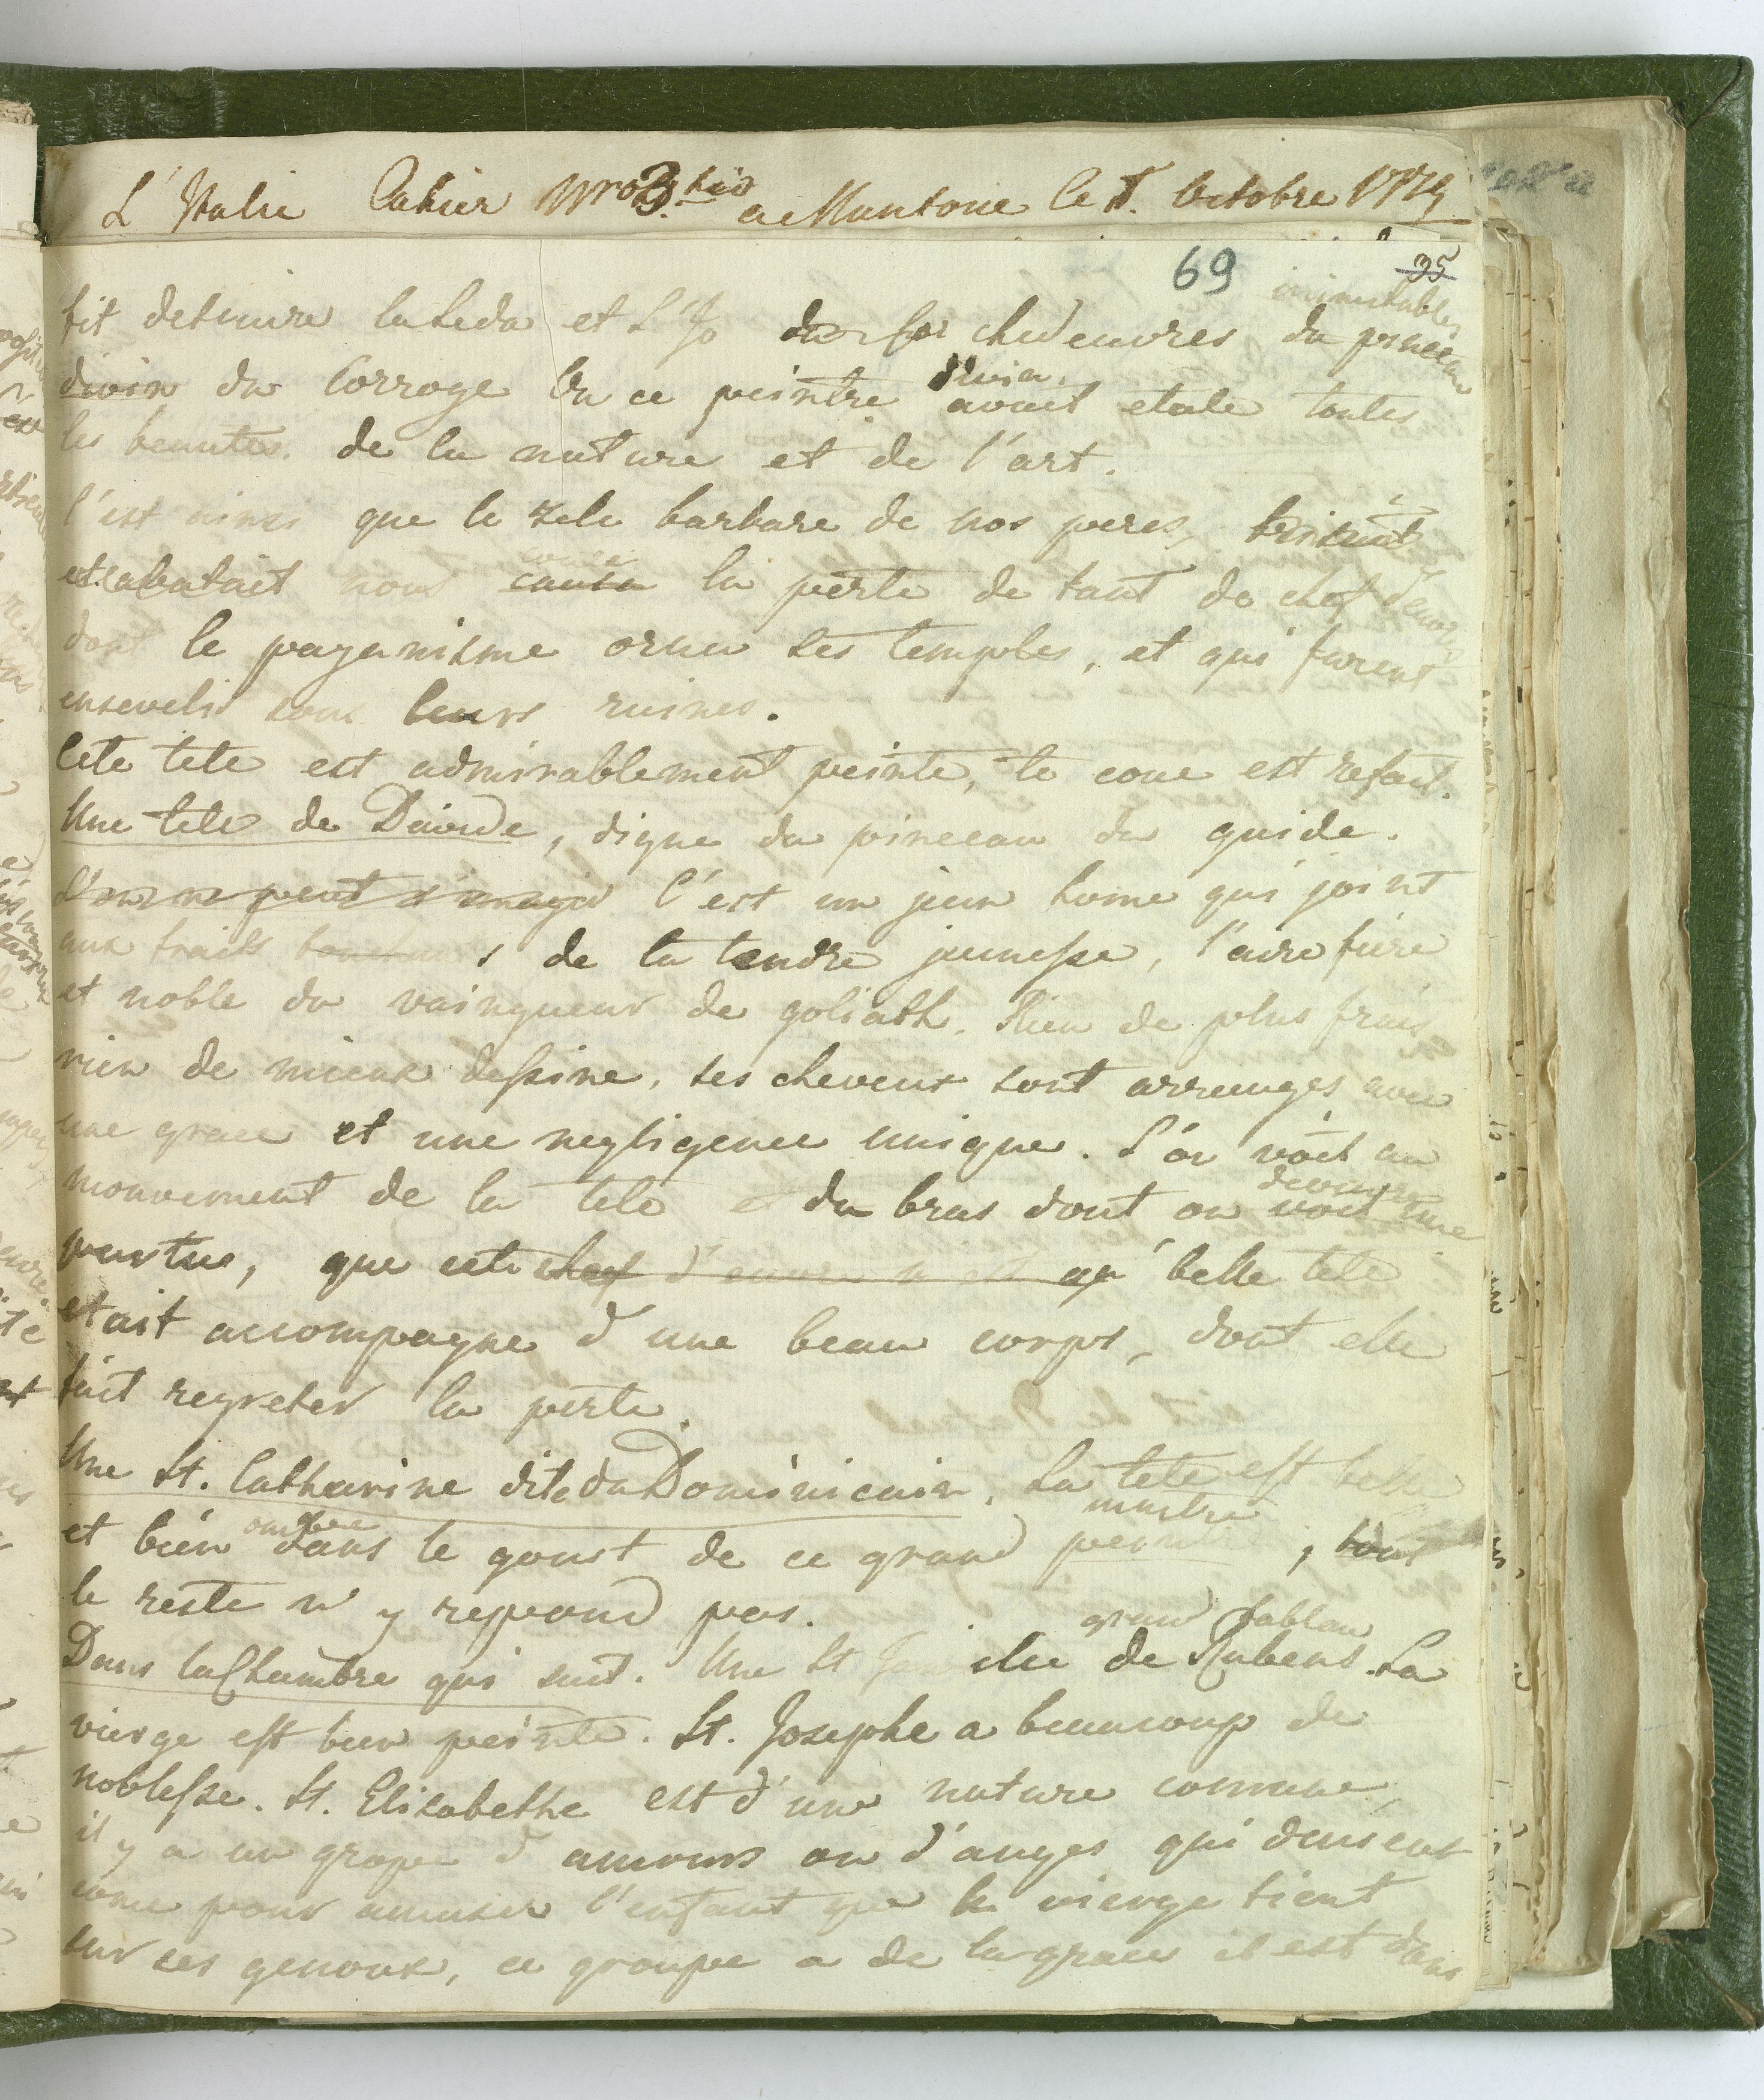 L'Italie Cahier Nro 3. a Mantoue le 8. Octobre 1779
69 35
inimitables
fit detruire la Leda et L'Jo chedeuvres du pinceau
divin du Correge Ou ce peintre divin avait etale toutes
les beautes. de la nature et de l'art.
C'est ainsi que le zele barbare de nos peres, brisant
et abatait nous causa la perte de tant de chef d'euvres
dont le paganisme orna ses temples, et qui furent
ensevelis sous leurs ruines.
Cete tete est admirablement peinte, le coue est refait.
Une tete de Davide, digne du pinceau du guide.
L'on ne peut s'imagi C'est un jeun home qui joint
aux traits de la tendre jeunesse, l'aire fiere
et noble du vainqueur de goliath. Rien de plus frais
rien de mieux dessine, ses cheveux sont arrenges avec
une grace et une negligence unique. L'on voit au
mouvement de la tete et du bras dont on voit une
decouvre
partie, que cete chef d'euvre n'est qu' belle tete
etait accompagne d'une beau corps, dont elle
fait regreter la perte.
Une St. Catharine dite du Dominicain, La tete est belle
et bien ombre dans le goust de ce grand maitre, tout
le reste n'y repond pas.
grand tablau
Dans la Chambre qui suit. Une St famille de Rubens. La
vierge est bien peinte. St. Josephe a beaucoup de
noblesse. St. Elisabethe est d'une nature comune,
il y a un grope d'amours ou d'anges qui dansent
come pour amuser l'enfant que la vierge tient
sur ses genoux, ce groupe a de la grace il est dans